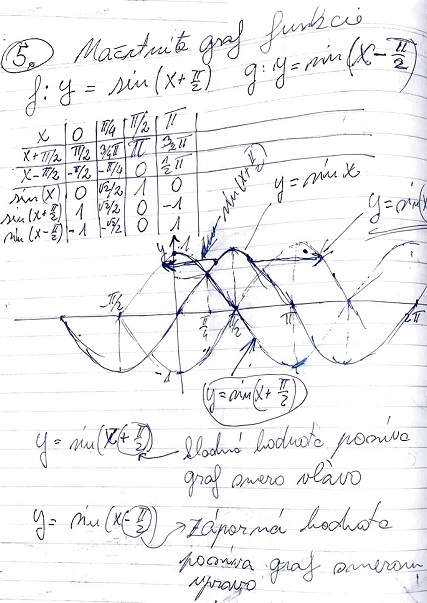 5. Načrtnite graf funkcie
f: y = sin(x+π/2) g: y = sin(x-π/2)
x | 0 | π/4 | π/2 | π
x+π/2 | π/2 | 3/4π | π | 3/2π
x-π/2 | -π/2 | -π/4 | 0 | 1/2π
sin(x) | 0 | √2/2 | 1 | 0
sin(x+π/2) | 1 | √2/2 | 0 | -1
sin(x-π/2) | -1 | -√2/2 | 0 | 1
sin(x+π/2)
y = sin x
y = sin(x
y
1
-π/2 π/4 π/2 π 2π
-1
y = sin(x+π/2)
y = sin(x+π/2) kladná hodnota posúva
graf smero vľavo
y = sin(x-π/2) → záporná hodnota
posúva graf smerom
vpravo